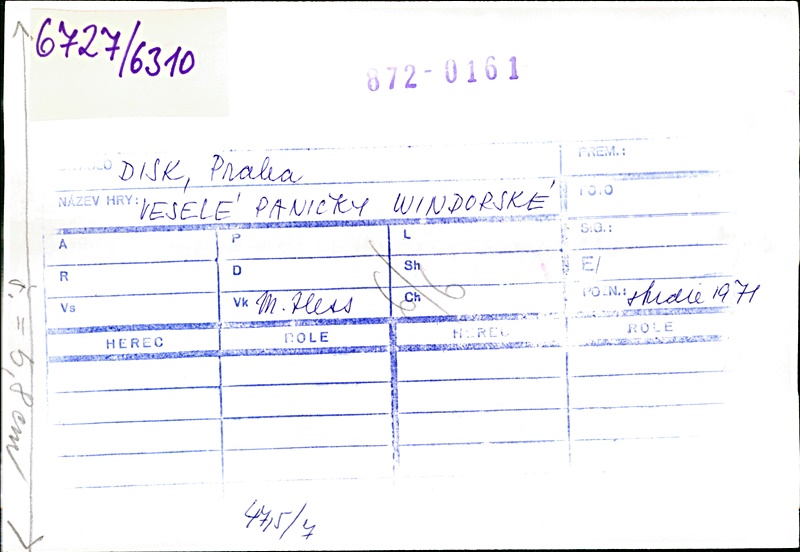 6727/6310
872-0161
DISK, Praha
PREM.:
NÁZEV HRY: VESELÉ PANIČKY WINDORSKÉ
FOTO
A P L S.G.:
R D Sh E/
Vs Vk M. Hess Ch POZN.: studie 1971
HEREC ROLE HEREC ROLE
475/7
š. = 9,8 cm